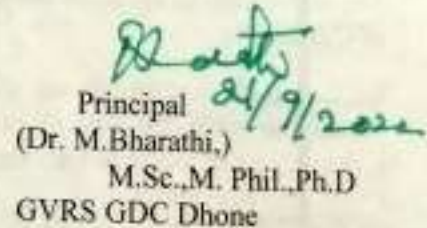 21/9/2022
Principal
(Dr. M.Bharathi,)
M.Sc.,M. Phil.,Ph.D
GVRS GDC Dhone